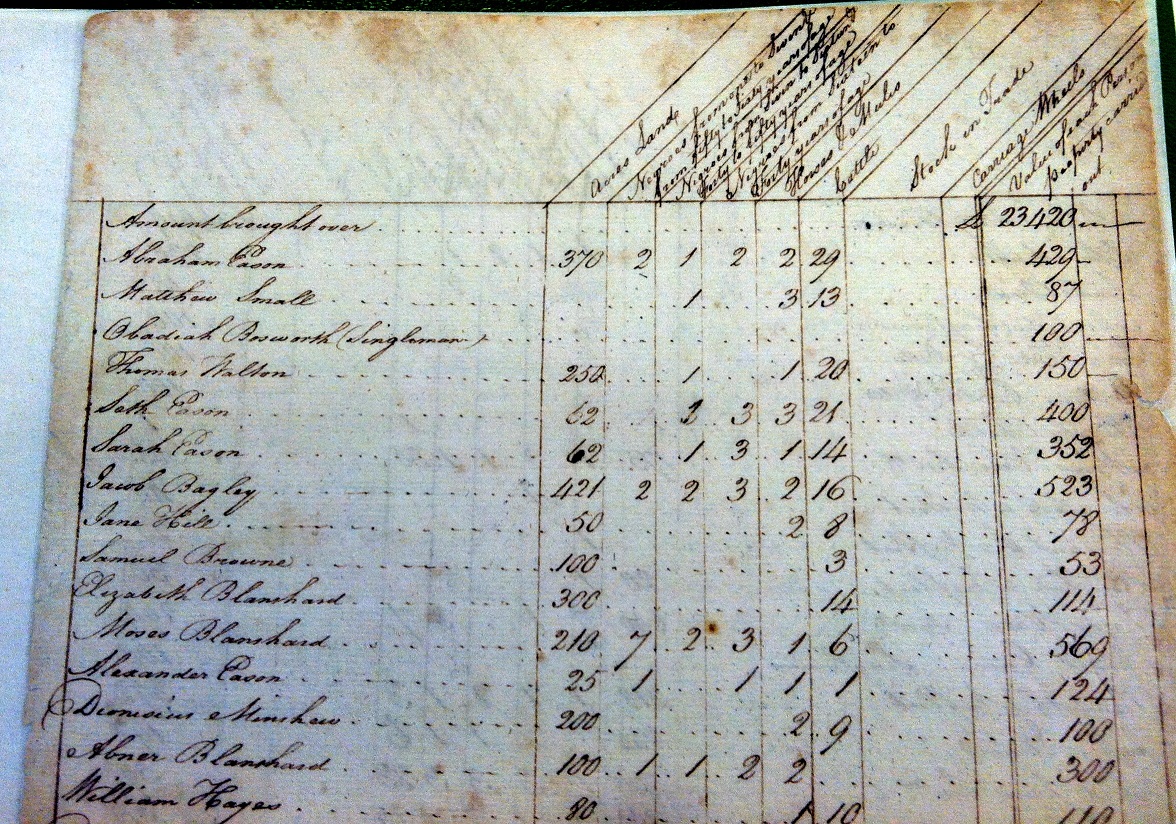 Acres Land
Negroes from one to Seven &
from fifty to Sixty years of age
Negroes from Seven to Sixteen &
forty to fifty years of age
Negroes from Sixteen to
forty years of age
Horses & Mules
Cattle
Stock in Trade
Carriage Wheels
Value of each Persons
property carried
out
Amount brought over £ 23420
Abraham Eason 370 2 1 2 2 29 429
Matthew Small 1 3 13 87
Obadiah Bosworth (Singleman) 100
Thomas Walton 250 1 1 20 150
Seth Eason 62 2 3 3 21 400
Sarah Eason 62 1 3 1 14 352
Jacob Bagley 421 2 2 3 2 16 523
Jane Hill 50 2 8 78
Samuel Browne 100 3 53
Elizabeth Blanshard 300 14 114
Moses Blanshard 210 7 2 3 1 6 569
Alexander Eason 25 1 1 1 1 124
Dionisius Minshew 200 2 9 100
Abner Blanshard 100 1 1 2 2 300
William Hayes 80 1 10 110